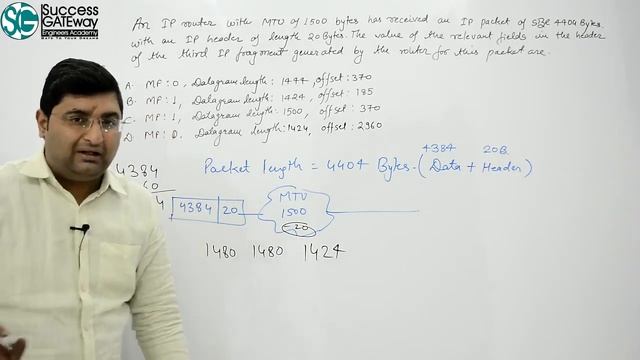 Success
GATEway
Engineers Academy
RATE TO YOUR DREAMS
SG
An IP router with MTU of 1500 bytes has received an IP packet of size 4404 Bytes
with an IP header of length 20 Bytes. The value of the relevant fields in the header
of the third IP fragment generated by the router for this packet are.
A. MF: 0, Datagram length: 1444, offset: 370
B. MF: 1, Datagram length: 1424, offset: 185
C. MF: 1, Datagram length: 1500, offset: 370
D. MF: 0. Datagram length: 1424, offset: 2960
4384 20B
Packet length = 4404 Bytes. (Data + Header)
4384
60
4
4384 20
MTU
1500
-20
1480 1480 1424